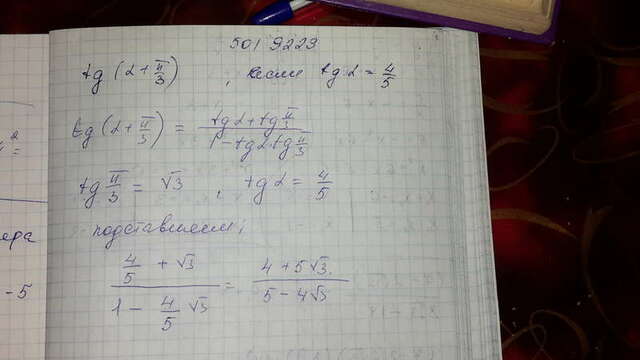 5019223
tg (α + π/3) , если tg α = 4/5
tg (α + π/3) = (tg α + tg π/3)/(1 - tg α tg π/3)
tg π/3 = √3 , tg α = 4/5
подставляем;
(4/5 + √3)/(1 - 4/5 √3) = (4 + 5√3)/(5 - 4√3)
ера
-5